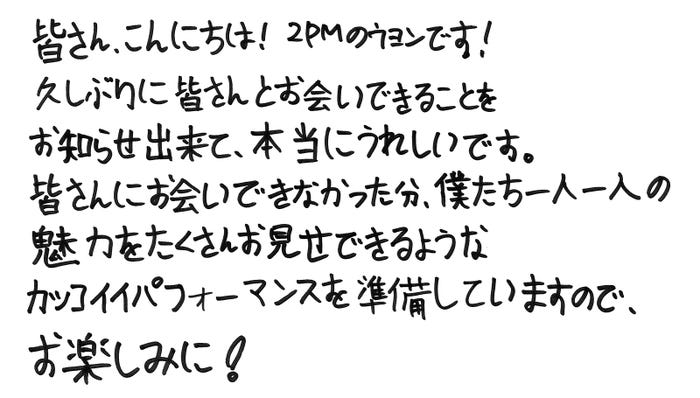 皆さん、こんにちは! 2PMのウヨンです!
久しぶりに皆さんとお会いできることを
お知らせ出来て、本当にうれしいです。
皆さんにお会いできなかった分、僕たち一人一人の
魅力をたくさんお見せできるような
カッコイイパフォーマンスを準備していますので、
お楽しみに!